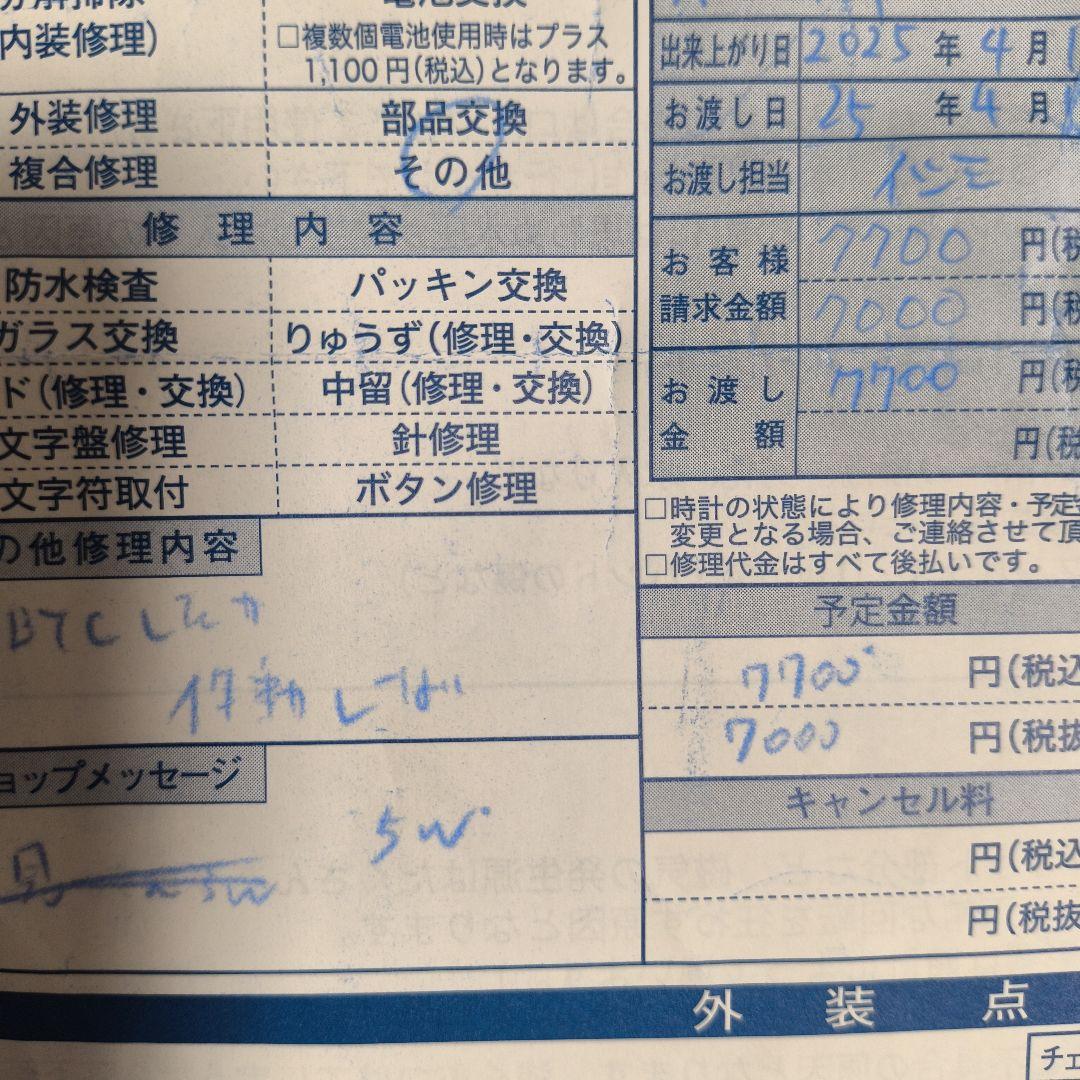 分解掃除
電池交換
内装修理)
□複数個電池使用時はプラス
1,100円(税込)となります。
外装修理
部品交換
複合修理
その他
修理内容
防水検査
パッキン交換
ガラス交換
りゅうず(修理・交換)
ド(修理・交換)
中留(修理・交換)
文字盤修理
針修理
文字符取付
ボタン修理
の他修理内容
BTC
ョップメッセージ
5W
出来上がり日 2025年4月1
お渡し日 25年4月
お渡し担当
お客様
請求金額
7700円(税
7000円(税
お渡し
金額
7700円(税
円(税
□時計の状態により修理内容・予定
変更となる場合、ご連絡させて頂
□修理代金はすべて後払いです。
予定金額
7700円(税込
7000円(税抜
キャンセル料
円(税込
円(税抜
外装点
チェ